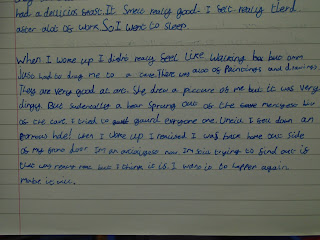 had a delicios roast. It smelt really good. I felt really tierd
after alot of work So I went to sleep
When I woke up I didnt really feel like walking but but own
just had to drag me to a cave. There was alos of Paintings and drawings
They are very good at art. She drew a picture of me but it was very
dingy. But suddenally a bear Sprung out of the
of the cave I tried to gaurd everyone one. Uneil I fell down an
hole! When I woke up I realised I was back home out side
of my front door. Im an now. Im still trying to find out if
that was real or not but I think it is. I want it to happen again.
Mabe it will.